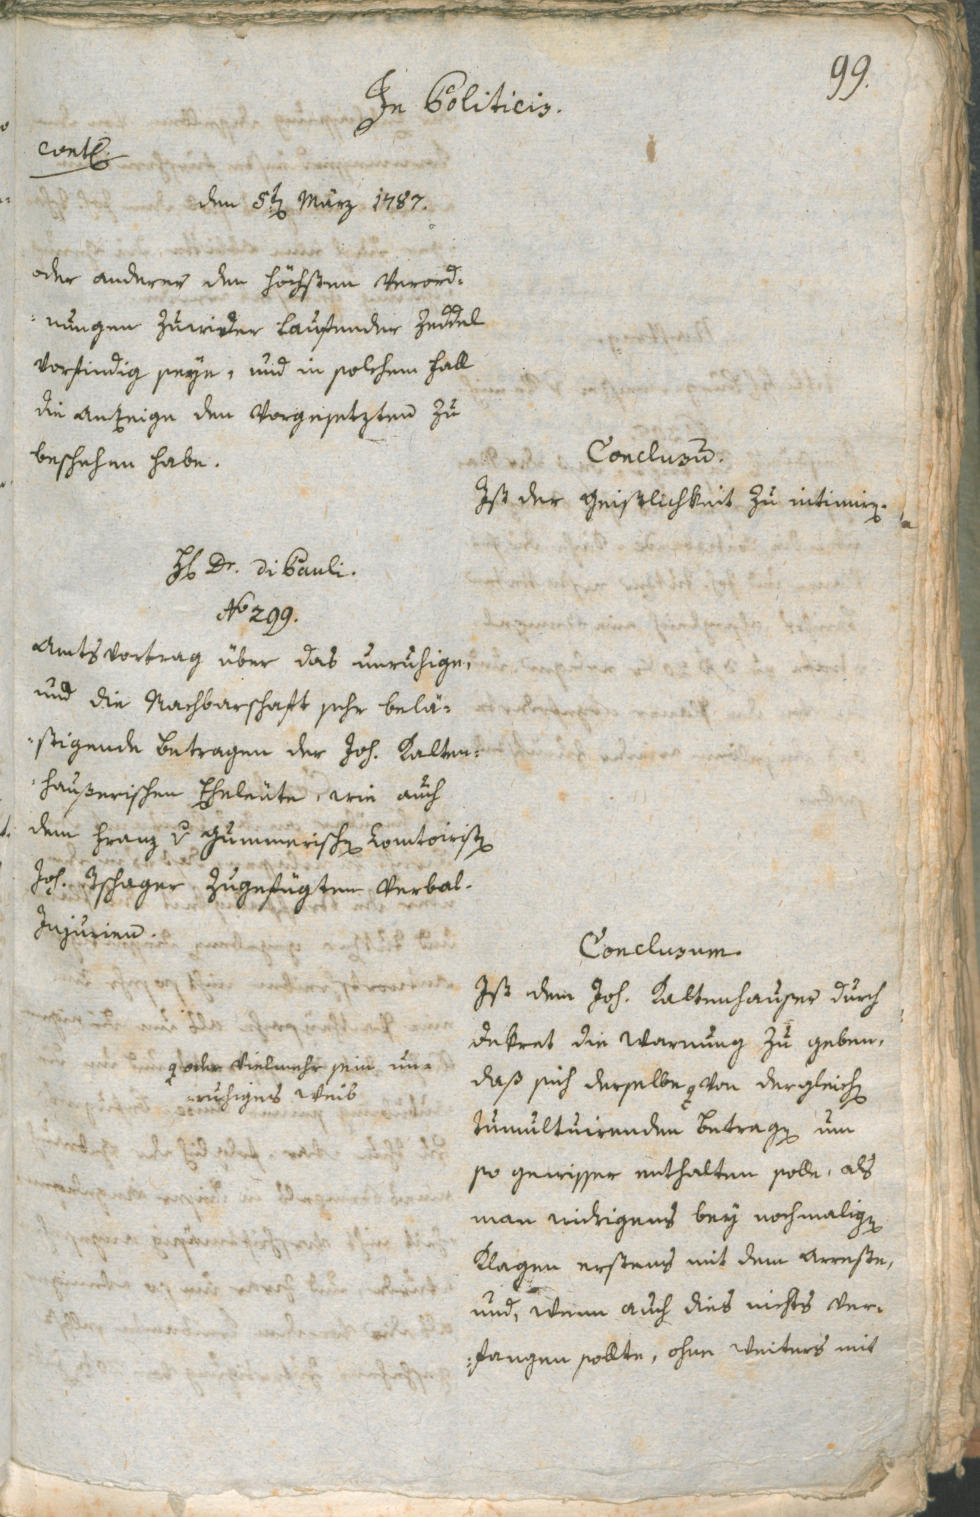 99.
In Politicis.
cont.
den 5t März 1787.
oder anderer den höchsten Verord-
nungen zuwider laufender Zeddel
vorfindig seye, und in solchem Fall
die Anzeige den Vorgesetzten zu
beschehen habe.
Conclusū.
Ist der Geistlichkeit zu intimirn.
H. Dr. di Pauli.
No 299.
Amtsvortrag über das unruhige,
und die Nachbarschaft sehr belä-
stigende Betragen der Joh. Kalten-
haußerischen Eheleute, wie auch
dem Franz v Gummerischen Comtoiristen
Joh. Tschager zugefügten Verbal-
Injurien.
Conclusum.
Ist dem Joh. Kaltenhauser durch
Dekret die Warnung zu geben,
daß sich derselbe von dergleichen
tumultuirenden Betragen um
so gewisser enthalten solle, als
man widrigens bey nochmaligen
Klagen erstens mit dem Arreste,
und, wenn auch dies nichts ver-
fangen sollte, ohne weiters mit
oder vielmehr sein un-
ruhiges Weib